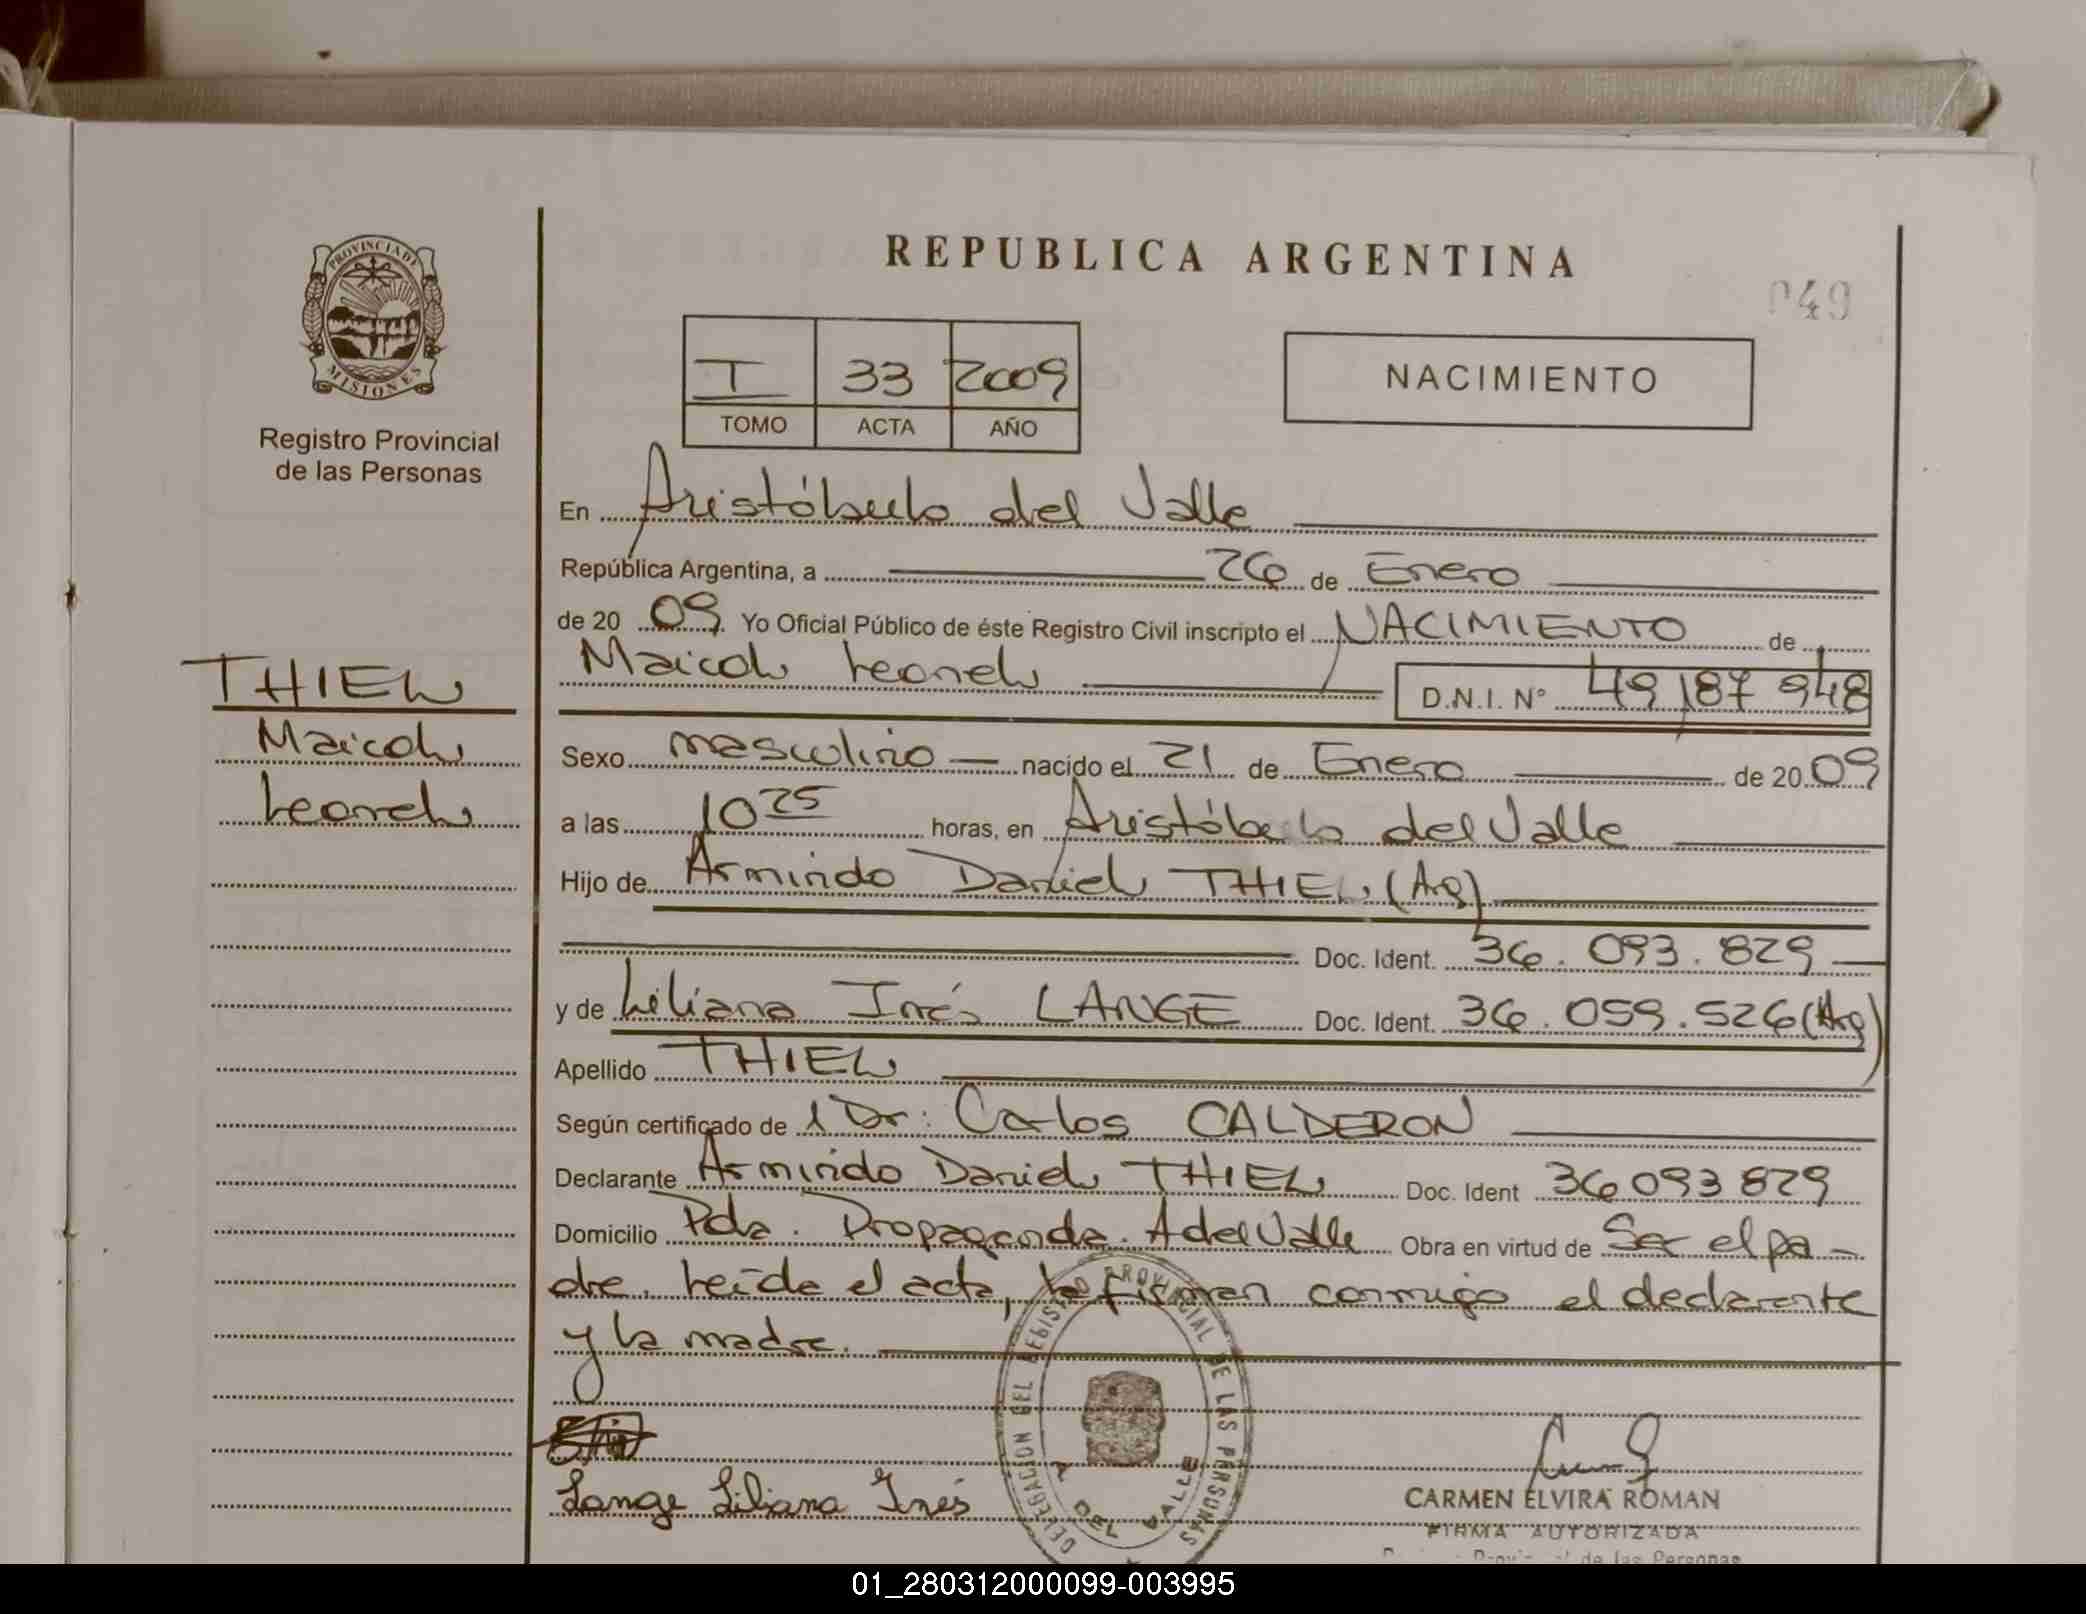 REPUBLICA ARGENTINA
049
PROVINCIA DE
MISIONES
Registro Provincial
de las Personas
I 33 2009
TOMO ACTA AÑO
NACIMIENTO
En Aristóbulo del Valle
República Argentina, a 26 de Enero
de 20 09 Yo Oficial Público de éste Registro Civil inscripto el NACIMIENTO de
Maicol Leonel D.N.I. Nº 49,187 948
THIEL
Maicol
Leonel
Sexo masculino nacido el 21 de Enero de 20 09
a las 10 25 horas, en Aristóbulo del Valle
Hijo de Armindo Daniel THIEL (Arg)
Doc. Ident. 36.093.829
y de Liliana Inés LANGE Doc. Ident. 36.059.526 (Arg)
Apellido THIEL
Según certificado de l Dr: Carlos CALDERON
Declarante Armindo Daniel THIEL Doc. Ident 36093829
Domicilio Pda. Propaganda. A del Valle Obra en virtud de Ser el pa-
dre. Leída el acta, la firman conmigo el declarante
y la madre.
DELEGACION DEL REGISTRO PROVINCIAL DE LAS PERSONAS
DEL VALLE
Lange Liliana Inés
CARMEN ELVIRA ROMAN
FIRMA AUTORIZADA
de las Personas
01_280312000099-003995